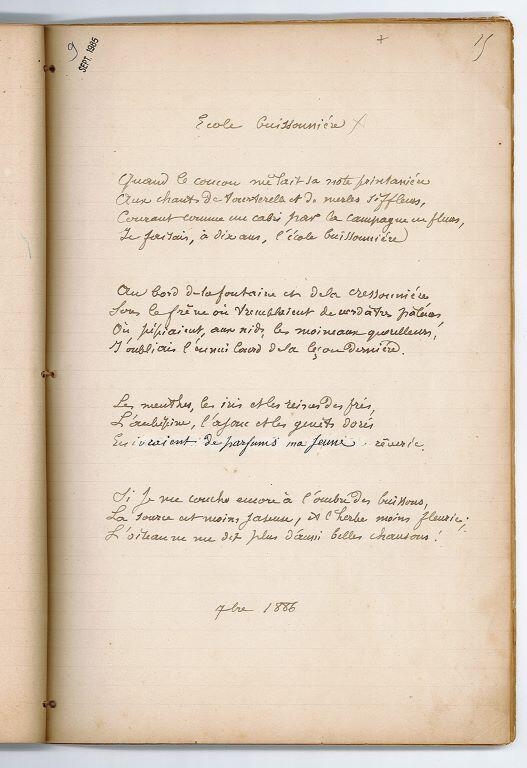 9
SEPT. 1985
+
15
Ecole buissonnière X
Quand le coucou mêlait sa note printanière
Aux chants de tourterelle et de merles siffleurs,
Courant comme un cabri par la campagne en fleurs,
Je faisais, à dix ans, l'école buissonnière
Au bord de la fontaine et de la cressonnière
Sous le frêne où tremblaient de verdâtres pâleurs
Où pépiaient, aux nids, les moineaux querelleurs,
J'oubliais l'ennui lourd de la leçon dernière.
Les menthes, les iris et les reines des prés,
L'aubépine, l'ajonc et les genêts dorés
Enivraient de parfums ma jeune rêverie.
Si je me couche encore à l'ombre des buissons,
La source est moins jaseuse, et l'herbe moins fleurie;
L'oiseau ne me dit plus d'aussi belles chansons!
7bre 1886